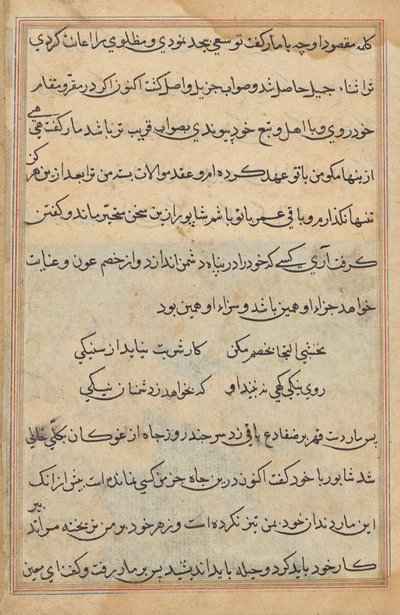 کلمه مقصود او چه بامار کفت توسعی بیحد نمودی و مظلومی را اعانت کردی
ترا ثناء جمیل حاصل شد و صواب جزیل واصل کشت اکنون اکر در مقر و مقام
خود روی و با اهل و تبع خود پیوندی بصواب قریب تر باشد مار کفت هی هی
از ینها مکو من باتو عهد کرده ام و عقد موالات بسته من ترا بعد ازین هرکز
تنها نکذارم و باقی عمر باتو باشم شاپور ازین سخن متحیر ماند و کفتن
کرفت آری کسی که خود را در پناه دشمن اندازد و از خصم عون و عنایت
خواهد جزاء او همین باشد و سزاء او همین بود
نخشبی التجا بخصم مکن کار شربت نیاید از سنیکی
روی نیکی کهی نه بیند او که بخواهد ز دشمنان نیکی
پس مار دست قهر بر ضفادع باقی زد سر چند روز چاه از غوکان بکلی خالی
شد شاپور با خود کفت اکنون درین چاه جز من کسی نمانده است پیش از انک
این مار دندان خود بمن تیز نکرده است و زهر خود بر من نریخته سر تدبیر
کار خود باید کرد و حیله باید اندیشید پس بر مار رفت و کفت ای معین